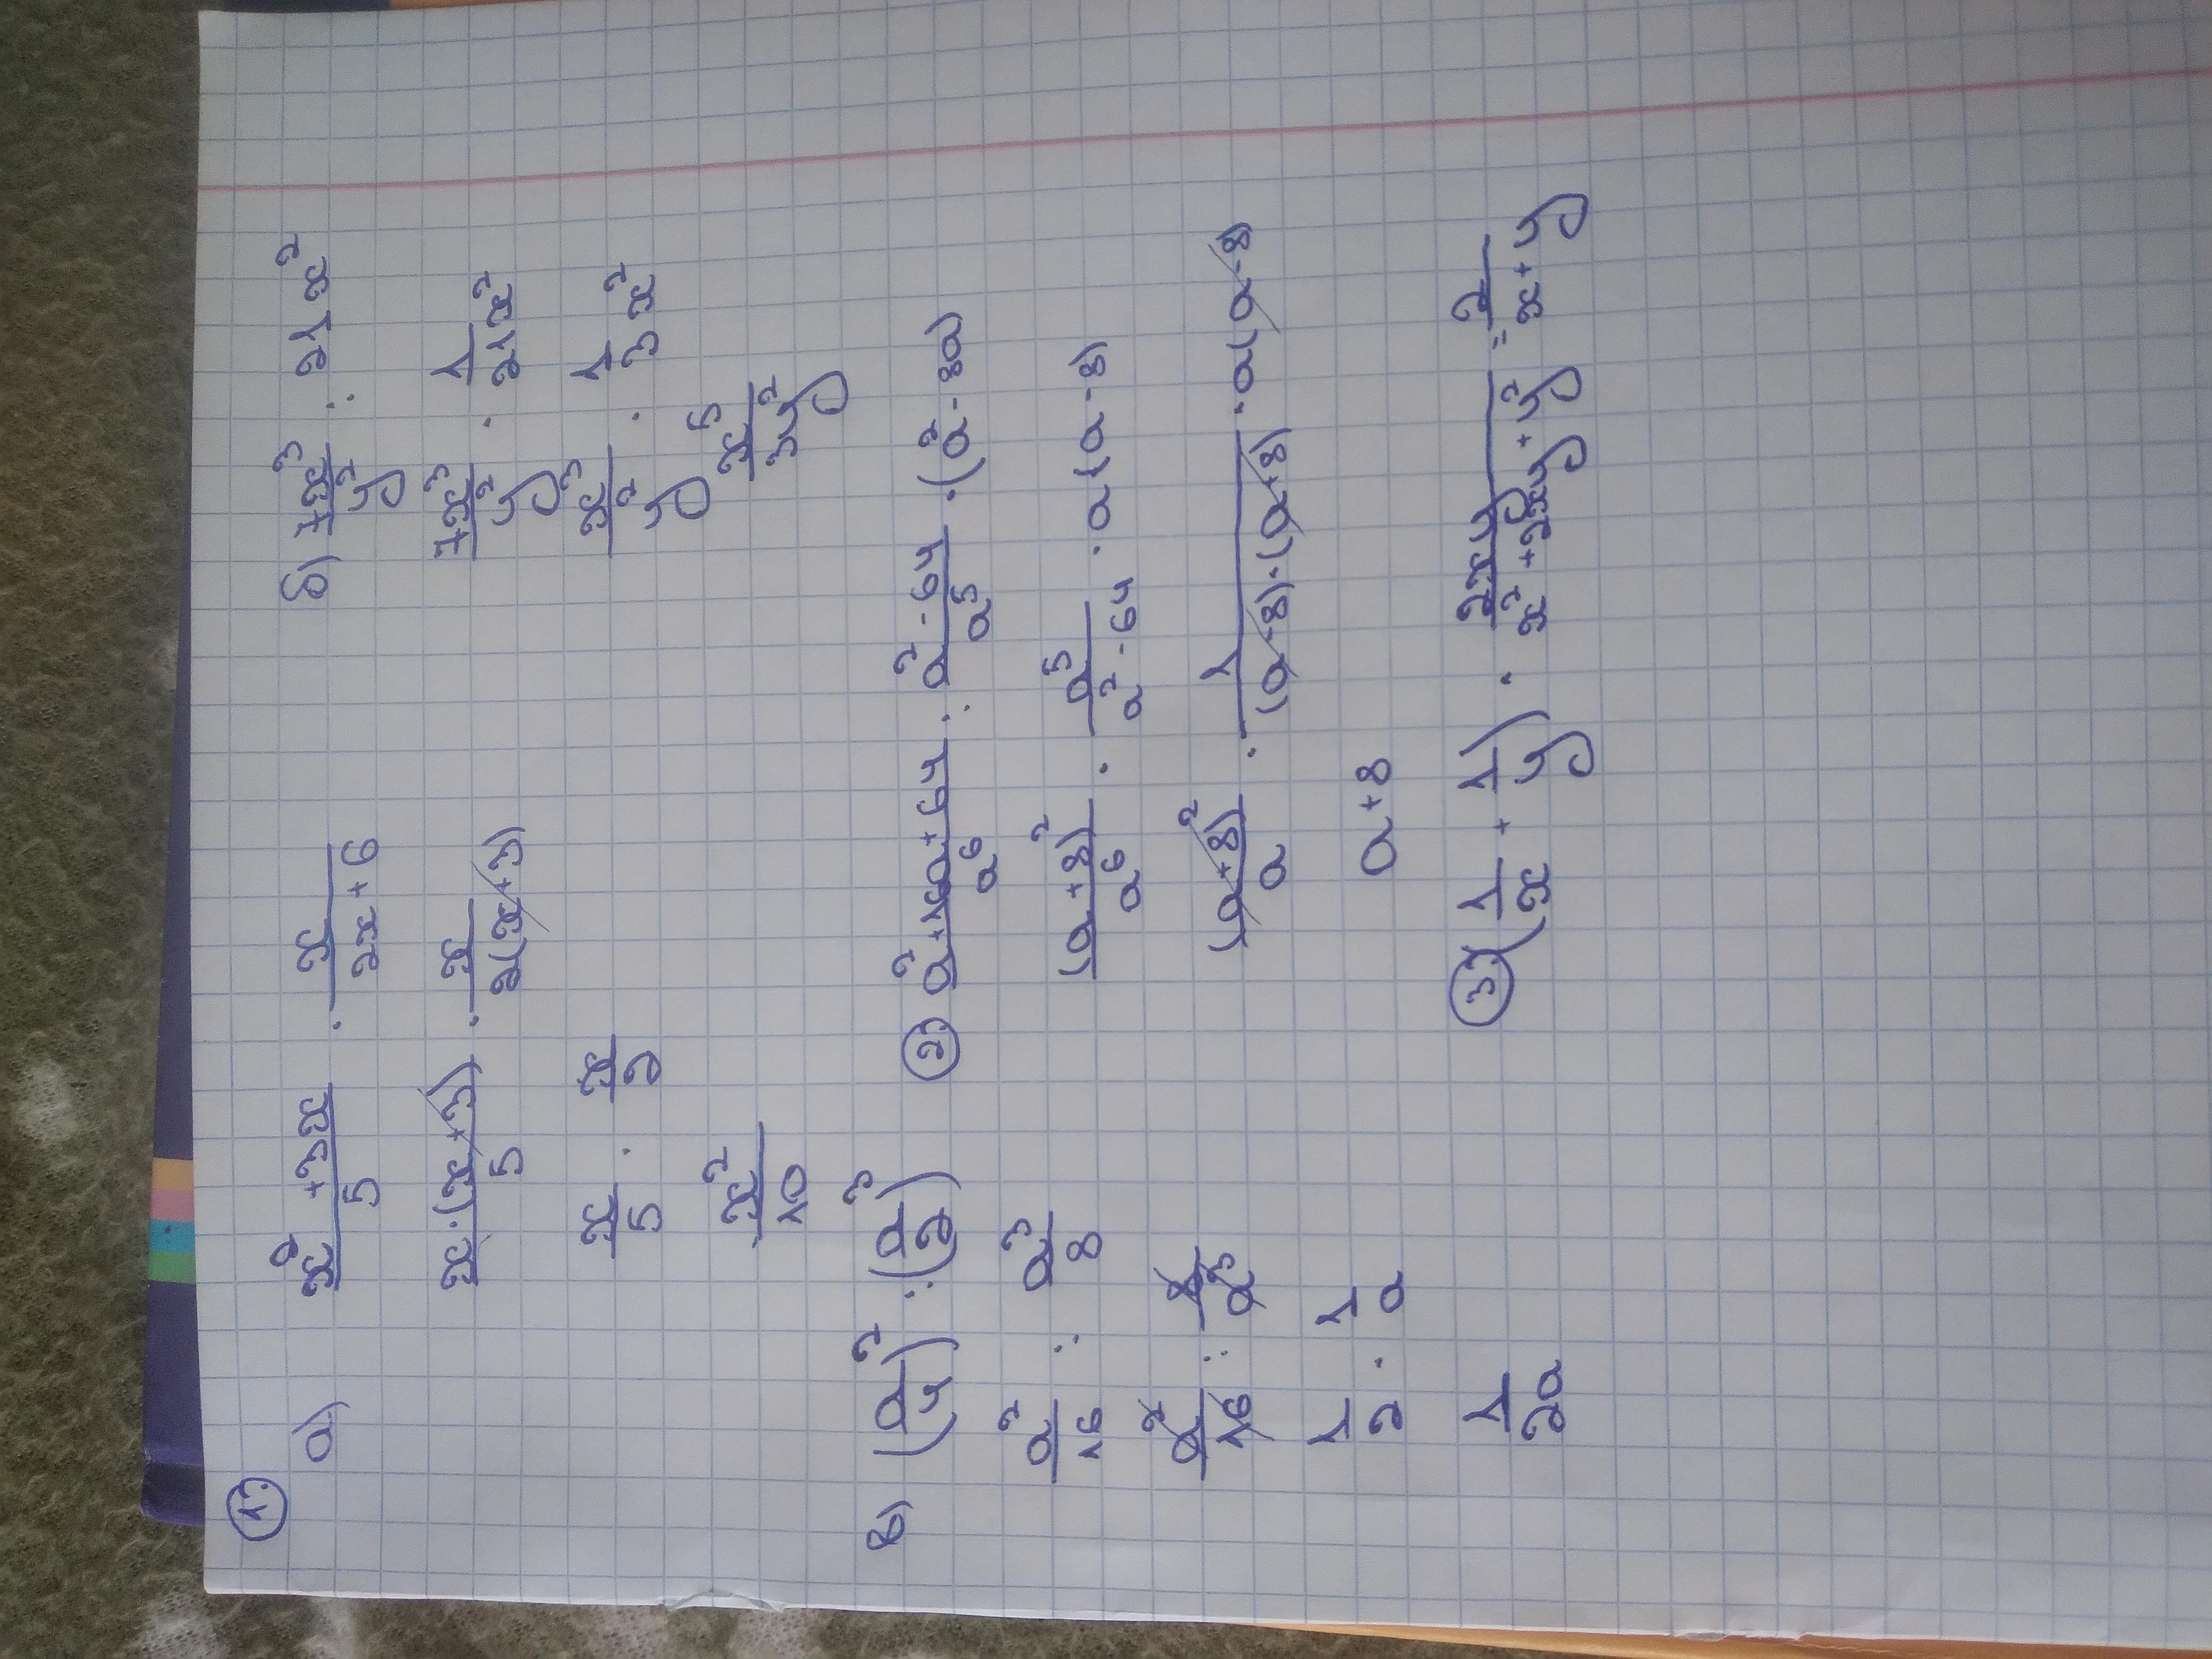 1)
а) (x² + 3x)/5 · x/(2x + 6)
x·(x + 3)/5 · x/2(x + 3)
x/5 · x/2
x²/10
б) 7x³/y² : 21x²
7x³/y² · 1/21x²
x³/y² · 1/3 x²
x⁵/3y²
в) (a/4)² : (a/2)³
a²/16 : a³/8
a²/16 : 8/a³
1/2 · 1/a
1/2a
2) (a² + 16a + 64)/a⁶ : (a² - 64)/a⁵ · (a² - 8a)
(a + 8)²/a⁶ · a⁵/(a² - 64) · a(a - 8)
(a + 8)²/a · 1/(a - 8)·(a + 8) · a(a - 8)
a + 8
3) (1/x + 1/y) · 2xy/(x² + 2xy + y²) = 2/(x + y)